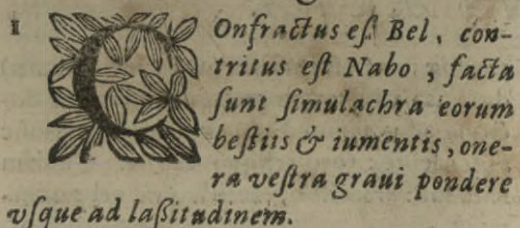 1 COnfractus est Bel, con-
tritus est Nabo, facta
sunt simulachra eorum
bestiis & iumentis, one-
ra vestra graui pondere
vsque ad laßitudinem.